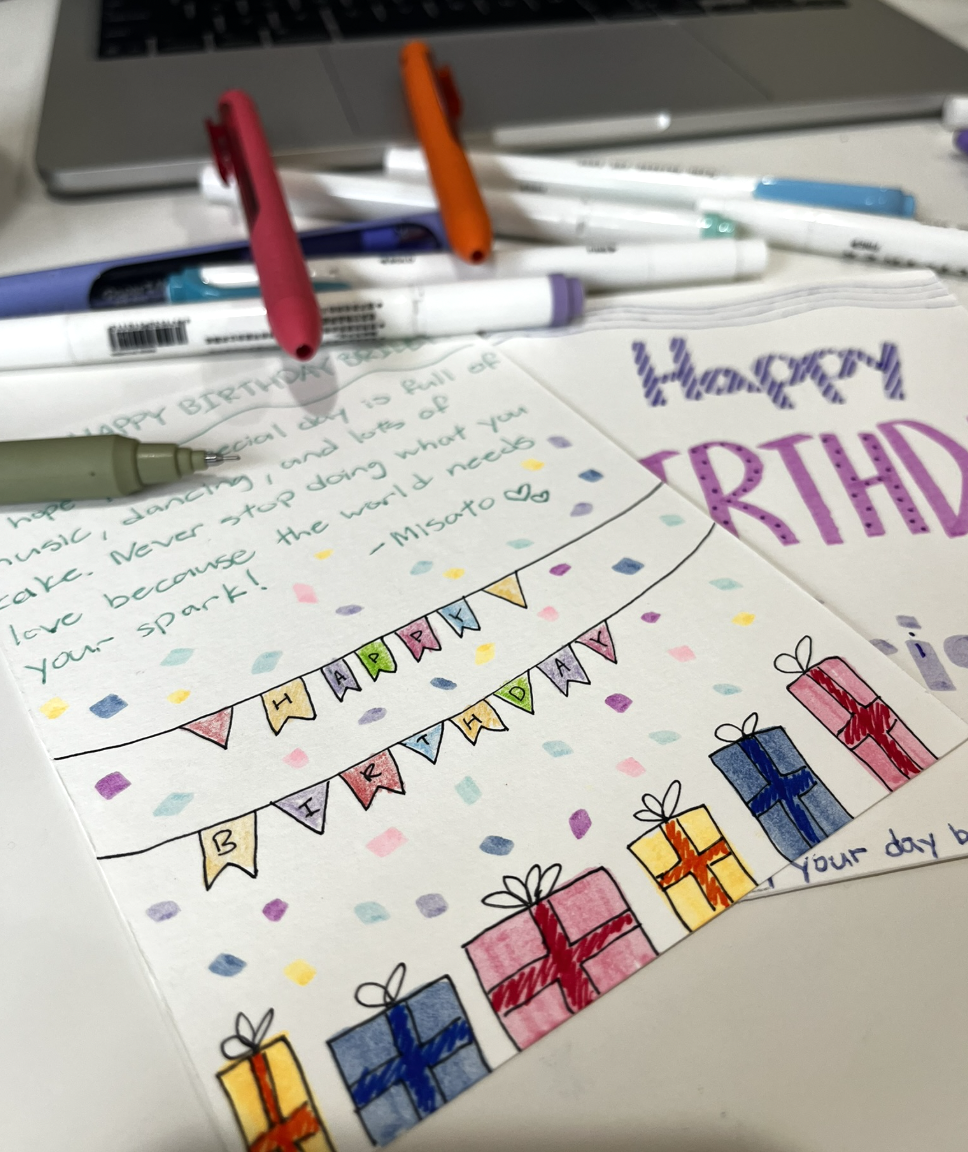 HAPPY BIRTHDAY
hope special day is full of
music, dancing, and lots of
cake. Never stop doing what you
love because the world needs
your spark!
-Misato
HAPPY
BIRTHDAY
Happy
BIRTHD
your day b